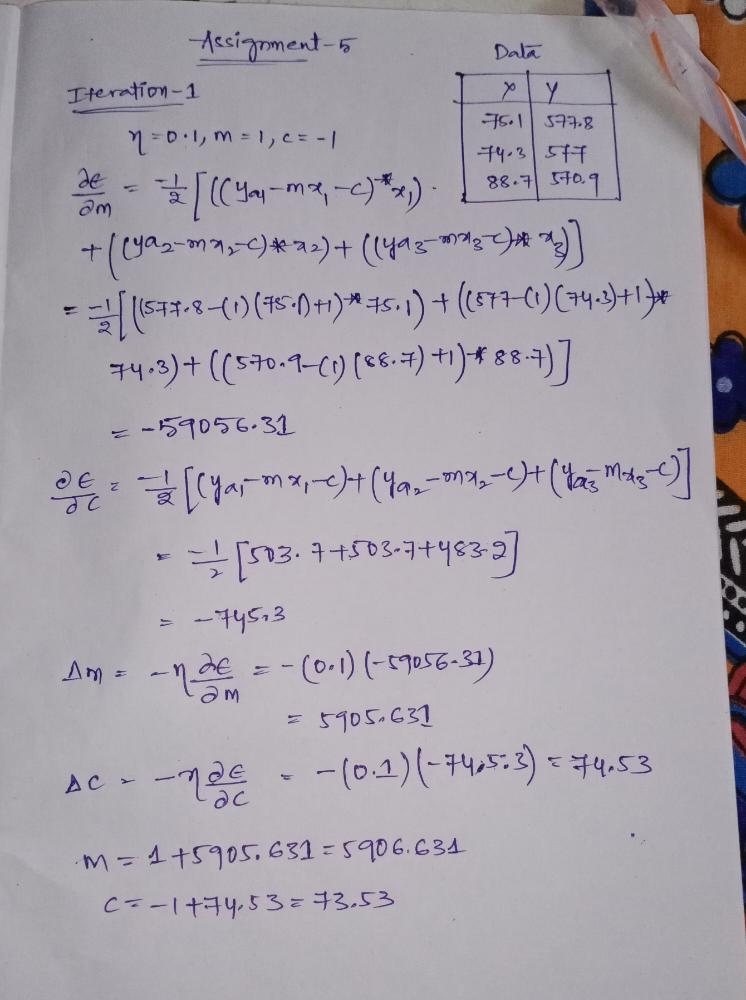 Assignment-5
Data
x | y
75.1 | 577.8
74.3 | 577
88.7 | 570.9
Iteration-1
η = 0.1, m = 1, c = -1
∂ϵ/∂m = -1/2 [((ya₁-mx₁-c)*x₁)
+ ((ya₂-mx₂-c)*x₂) + ((ya₃-mx₃-c)*x₃)]
= -1/2 [((577.8-(1)(75.1)+1)*75.1) + ((577-(1)(74.3)+1)*
74.3) + ((570.9-(1)(88.7)+1)*88.7)]
= -59056.31
∂ϵ/∂c = -1/2 [(ya₁-mx₁-c)+(ya₂-mx₂-c)+(ya₃-mx₃-c)]
= -1/2 [503.7+503.7+483.2]
= -745.3
Δm = -η ∂ϵ/∂m = -(0.1)(-59056.31)
= 5905.631
Δc = -η ∂ϵ/∂c = -(0.1)(-745.3) = 74.53
m = 1+5905.631 = 5906.631
c = -1+74.53 = 73.53